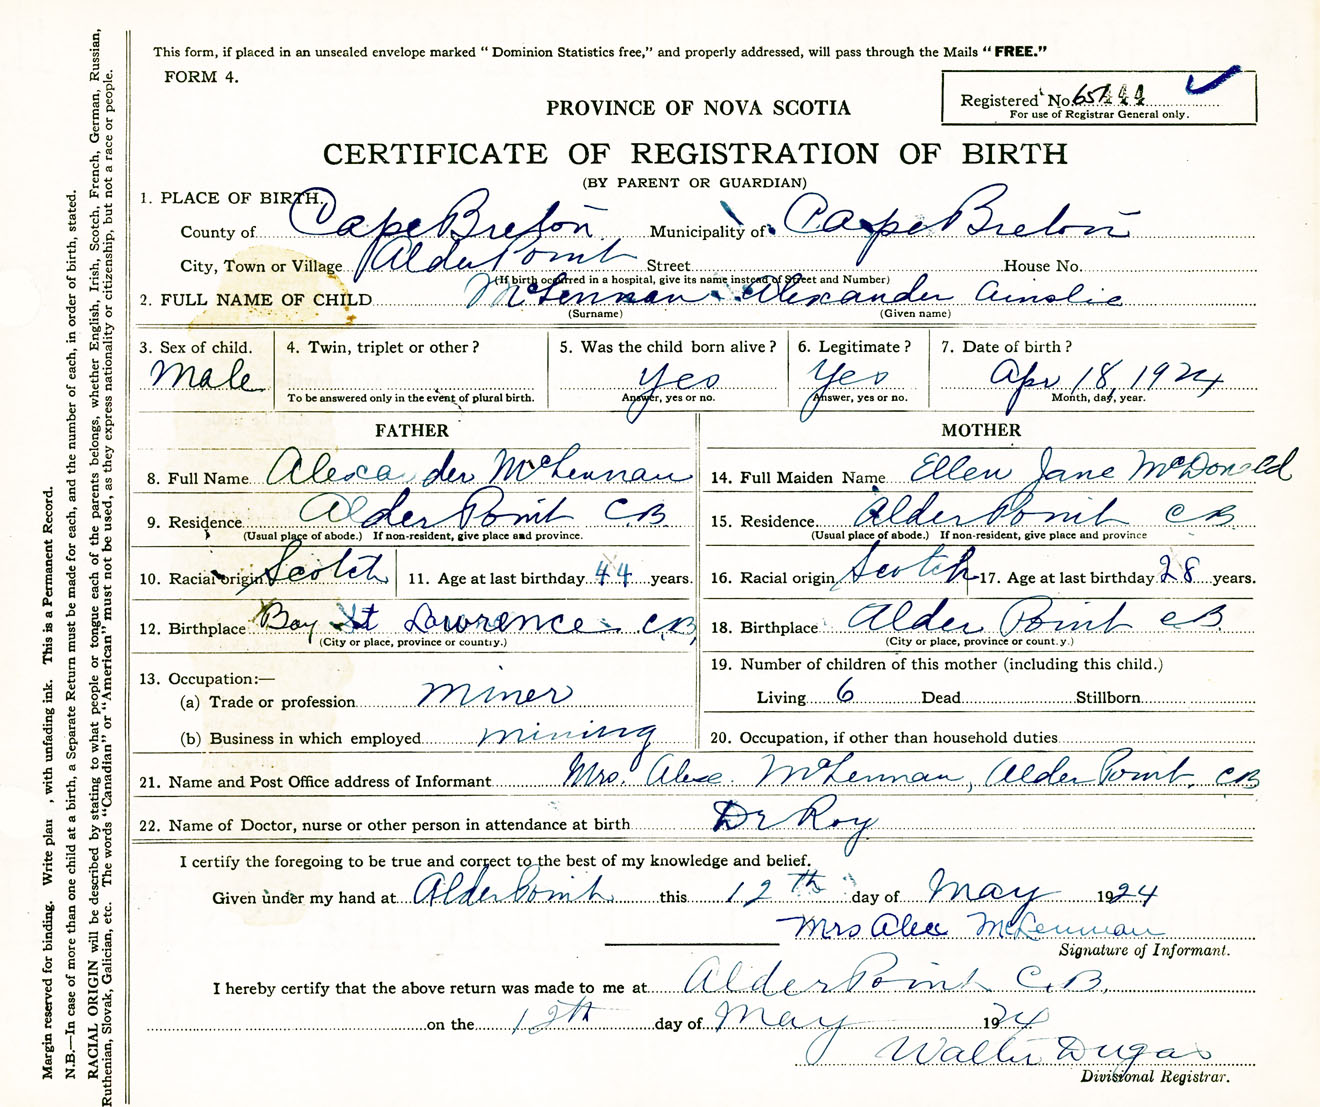 This form, if placed in an unsealed envelope marked “ Dominion Statistics free,” and properly addressed, will pass through the Mails “ FREE.”
FORM 4.
Registered No.
For use of Registrar General only.
PROVINCE OF NOVA SCOTIA
CERTIFICATE OF REGISTRATION OF BIRTH
(BY PARENT OR GUARDIAN)
1. PLACE OF BIRTH.
County of Cape Breton Municipality of Cape Breton
City, Town or Village Alder Point Street House No.
(If birth occurred in a hospital, give its name instead of Street and Number)
2. FULL NAME OF CHILD McLennan Alexander Ainslie
(Surname) (Given name)
3. Sex of child. 4. Twin, triplet or other ? 5. Was the child born alive ? 6. Legitimate ? 7. Date of birth ?
Male yes yes Apr 18, 1924
To be answered only in the event of plural birth. Answer, yes or no. Answer, yes or no. Month, day, year.
FATHER MOTHER
8. Full Name Alexander McLennan 14. Full Maiden Name Ellen Jane McDonald
9. Residence Alder Point C.B 15. Residence Alder Point C B
(Usual place of abode.) If non-resident, give place and province. (Usual place of abode.) If non-resident, give place and province
10. Racial origin Scotch 11. Age at last birthday 44 years. 16. Racial origin Scotch 17. Age at last birthday 28 years.
12. Birthplace Bay St Lawrence C.B, 18. Birthplace Alder Point C B.
(City or place, province or county.) (City or place, province or county.)
13. Occupation:— 19. Number of children of this mother (including this child.)
(a) Trade or profession miner Living 6 Dead Stillborn
(b) Business in which employed mining 20. Occupation, if other than household duties
21. Name and Post Office address of Informant Mrs. Alex. McLennan, Alder Point, C B
22. Name of Doctor, nurse or other person in attendance at birth Dr Roy
I certify the foregoing to be true and correct to the best of my knowledge and belief.
Given under my hand at Alder Point this 12th day of May 1924
Mrs Alex McLennan
Signature of Informant.
I hereby certify that the above return was made to me at Alder Point C.B.
on the 12th day of May 1924
Walter Dugas
Divisional Registrar.
Margin reserved for binding. Write plai , with unfading ink. This is a Permanent Record.
N.B.—In case of more than one child at a birth, a Separate Return must be made for each, and the number of each, in order of birth, stated.
RACIAL ORIGIN will be described by stating to what people or tongue each of the parents belongs, whether English, Irish, Scotch, French, German, Russian,
Ruthenian, Slovak, Galician, etc. The words “Canadian” or “American” must not be used, as they express nationality or citizenship, but not a race or people.